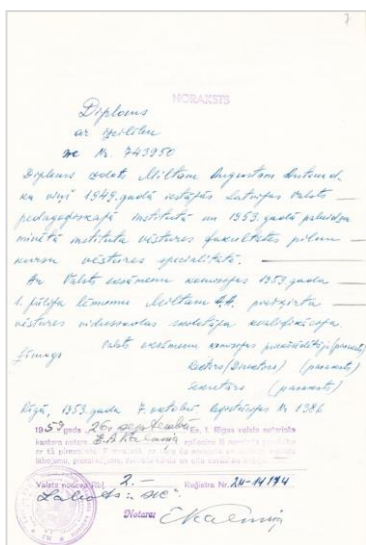 7
NORAKSTS
Diploms
ar izcilību
Nr. 743950
Diploms izdots Miltam Augustam Antona d.
ka viņš 1949. gadā iestājās Latvijas Valsts
pedagoģiskajā institūtā un 1953. gadā pabeidza
minētā institūta vēstures fakultātes pilnu
kursu vēstures specialitātē.
Ar Valsts eksāmenu komisijas 1953. gada
1. jūlija lēmumu Miltam A.A. piešķirta
vēstures vidusskolas skolotāja kvalifikācija.
Zīmogs Valsts eksāmenu komisijas priekšsēdētājs (paraksts)
Rektors (Direktors) (paraksts)
Sekretārs (paraksts)
Rīgā, 1953. gada 7. oktobrī Reģistrācijas Nr 1386
1959 gada 26. septembrī Es, 1. Rīgas valsts notariāta
kantora notare
Valsts nodeva Rbļ. 2.- Reģistra Nr. 24-14174
Labots: "
Notars: